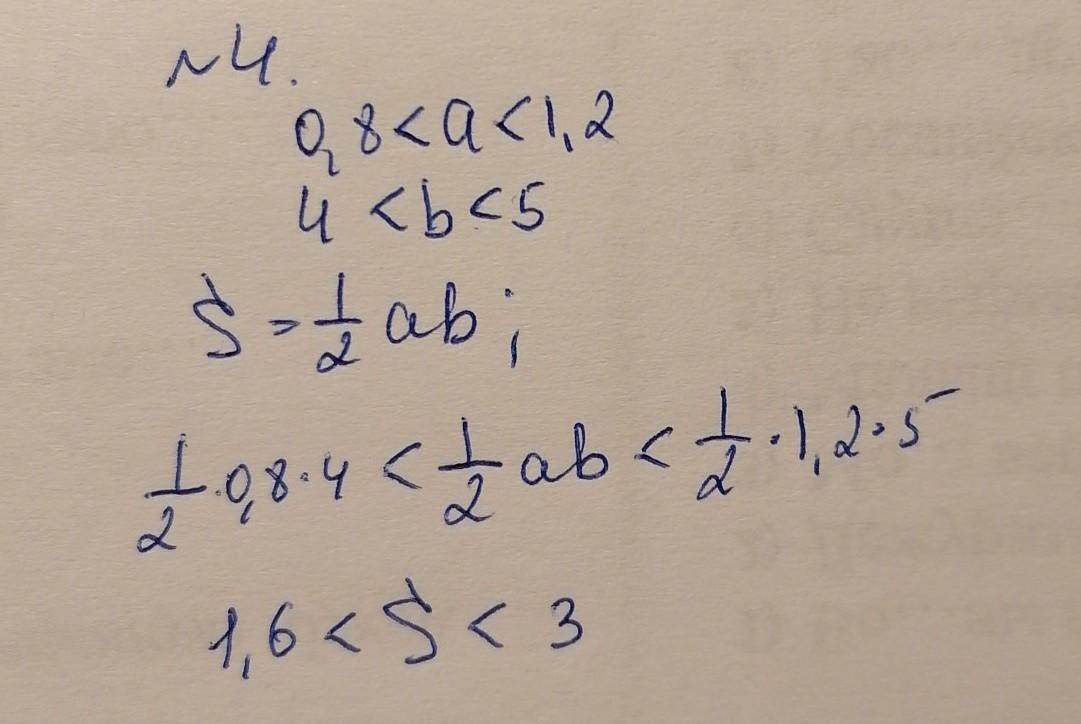 №4.
0,8<a<1,2
4 <b<5
S = 1/2 ab;
1/2·0,8·4 < 1/2 ab < 1/2·1,2·5
1,6 < S < 3